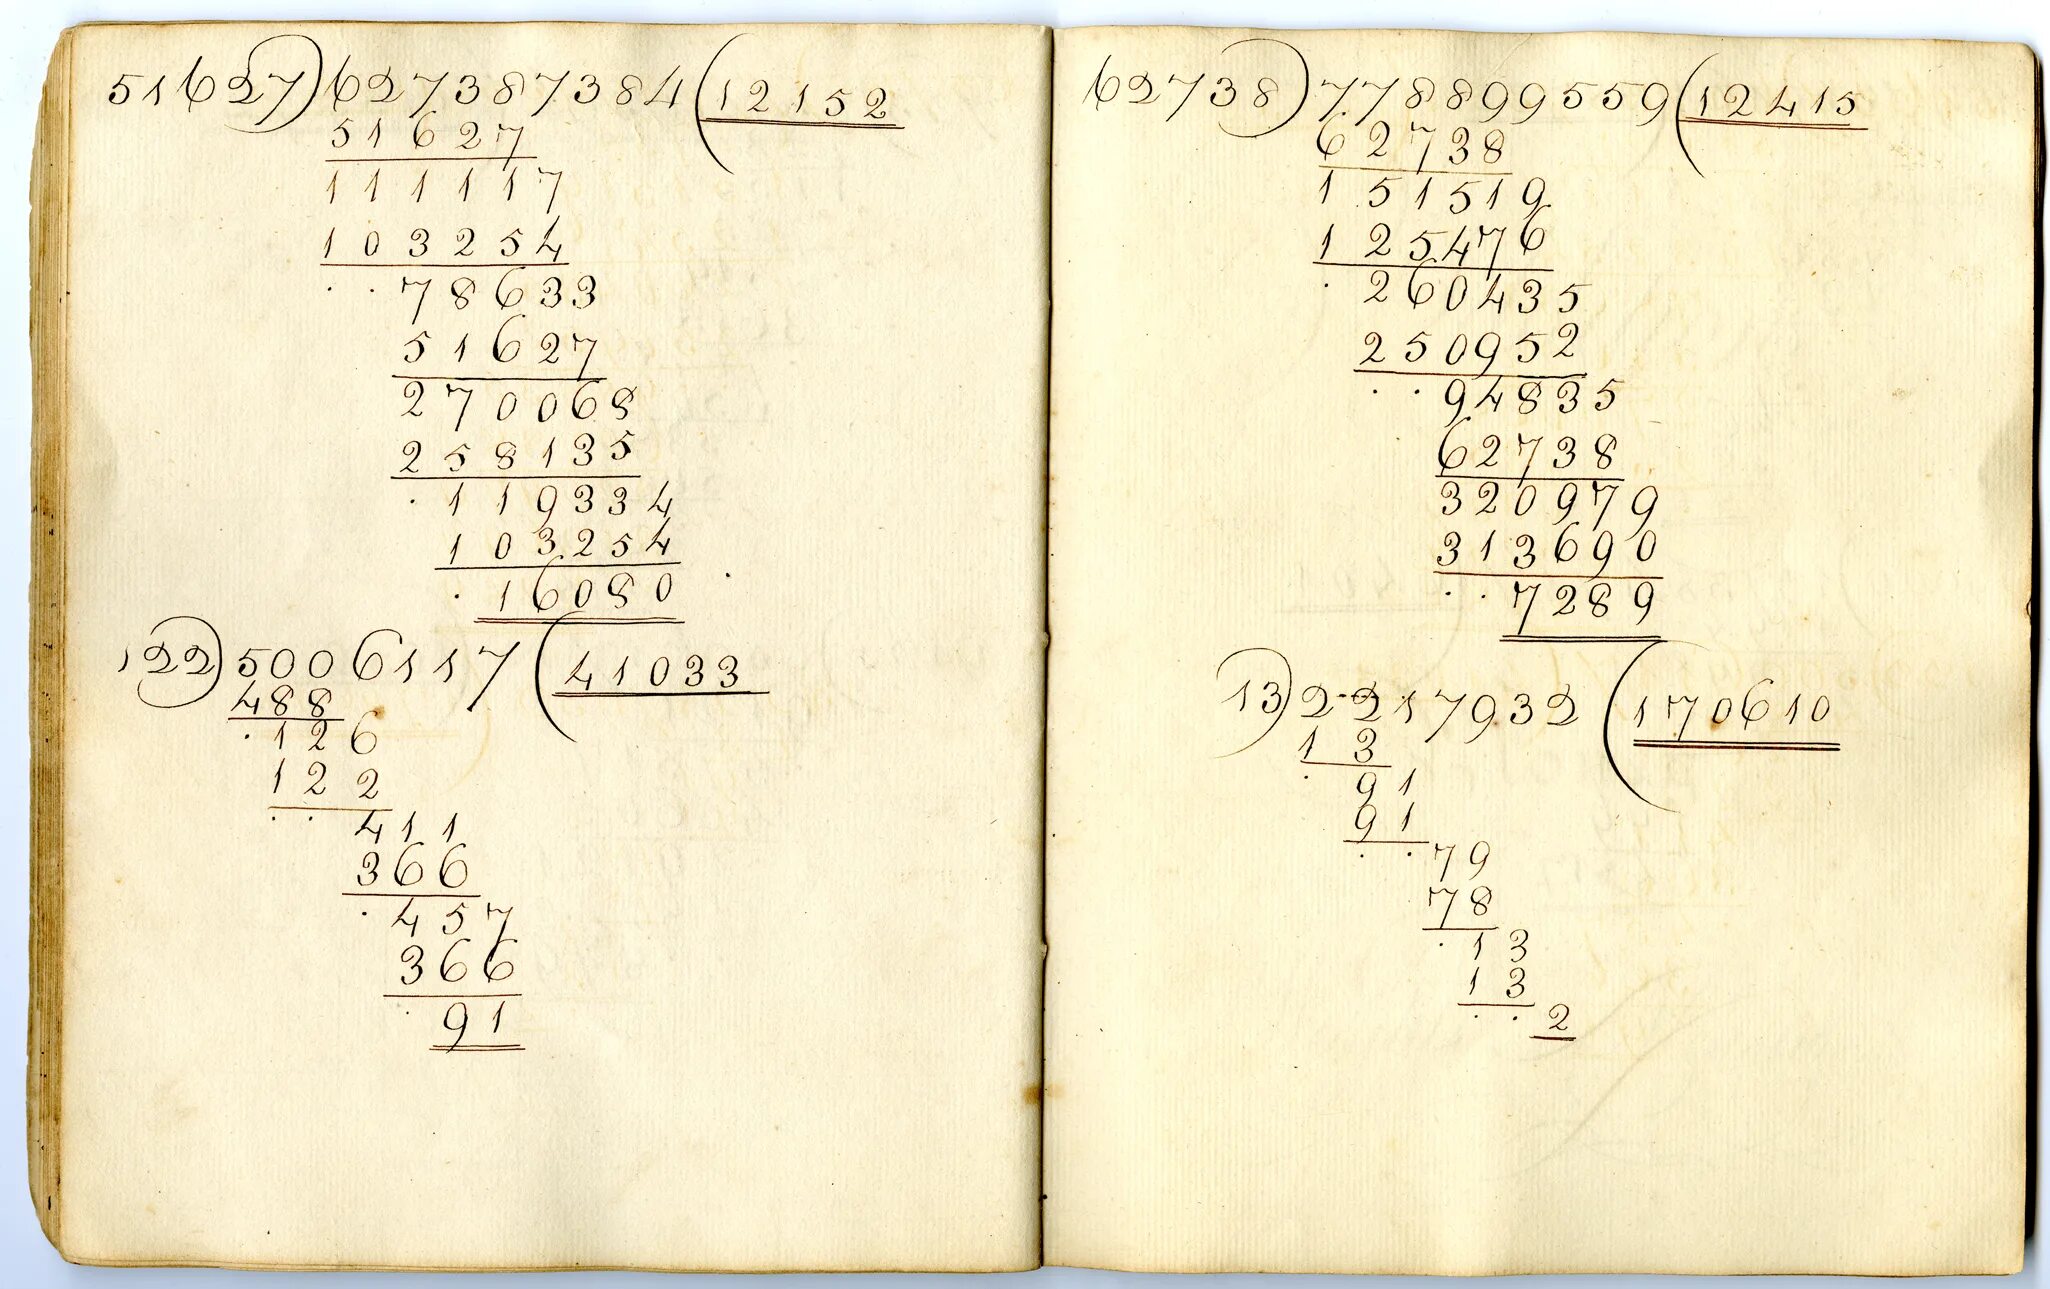 51627) 627387384 (12152
51627
111117
103254
78633
51627
270068
258135
119334
103254
16080
122) 5006117 (41033
488
126
122
411
366
457
366
91
62738) 778899559 (12415
62738
151519
125476
260435
250952
94835
62738
320979
313690
7289
13) 2217932 (170610
13
91
91
79
78
13
13
2